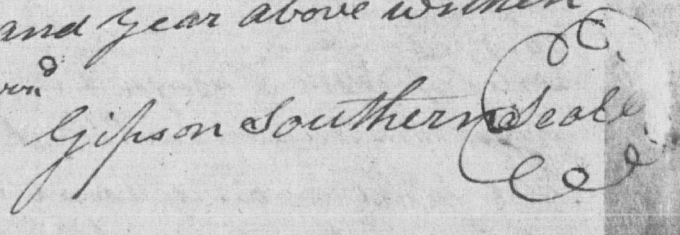 and year above written
Gipson Southern Seal